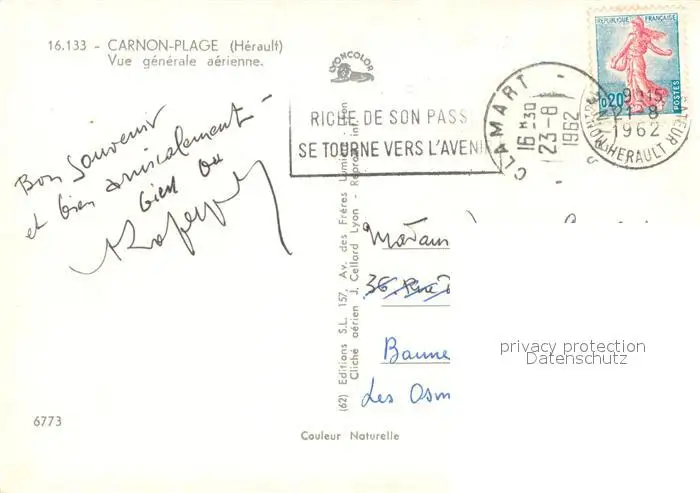 16.133 - CARNON-PLAGE (Hérault)
Vue générale aérienne.
LYONCOLOR
REPUBLIQUE FRANÇAISE
0,20
POSTES
RICHE DE SON PASS
SE TOURNE VERS L'AVENI
CLAMART
16 H 30
23-8
1962
S
9 15
21-8
1962
HERAULT
Bon Souvenir
et bien amicalement -
Madam
36 Rue
Banne
Les Osm
privacy protection
Datenschutz
(62) Editions S.L. 157, Av. des Frères Lumière
Cliché aérien J. Cellard Lyon - Reprod. in
6773
Couleur Naturelle